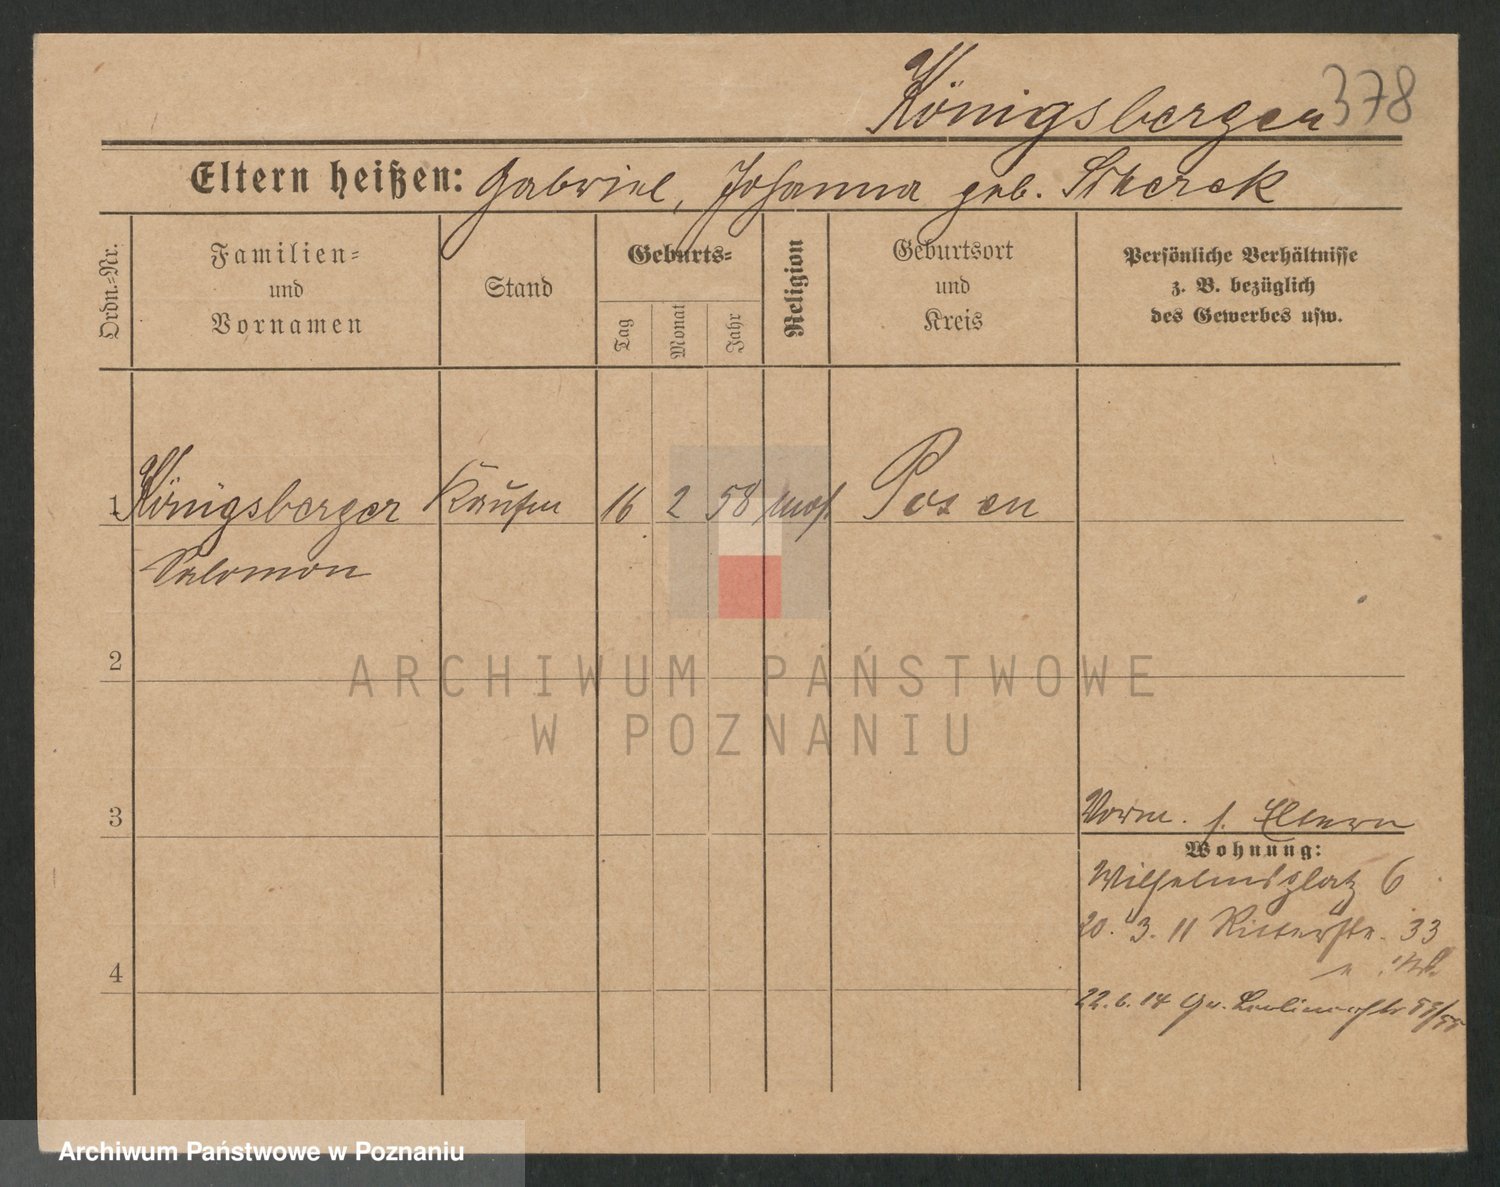 Königsberger 378
Eltern heißen: Gabriel, Johanna geb.
Ordn.-Nr.
Familien- und Vornamen
Stand
Geburts-
Tag
Monat
Jahr
Religion
Geburtsort und Kreis
Persönliche Verhältnisse
z. B. bezüglich
des Gewerbes usw.
1 Königsberger Kaufm 16 2 58 mos. Posen
Salomon
2
3
4
Vorm. s. Eltern
Wohnung:
Wilhelmsplatz 6
20. 3. 11 Ritterstr. 33
22. 6. 14
ARCHIWUM PAŃSTWOWE
W POZNANIU
Archiwum Państwowe w Poznaniu